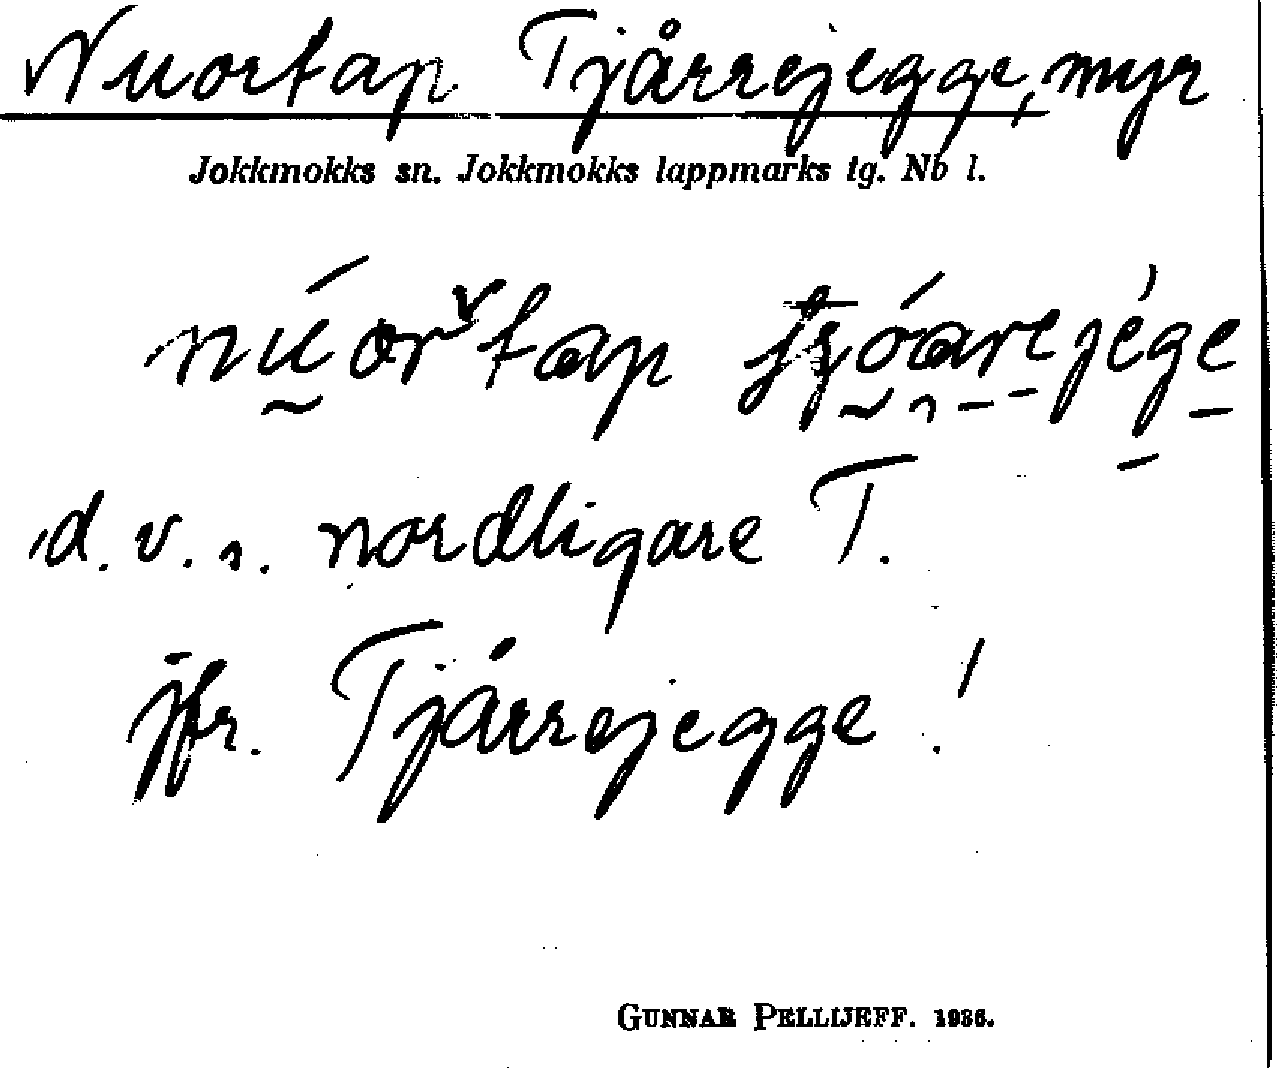 Nuortap Tjårrejegge, myr
Jokkmokks sn. Jokkmokks lappmarks tg. Nb l.
núorštap
d.v.s. nordligare T.
jfr. Tjårrejegge!
GUNNAR PELLIJEFF. 1936.